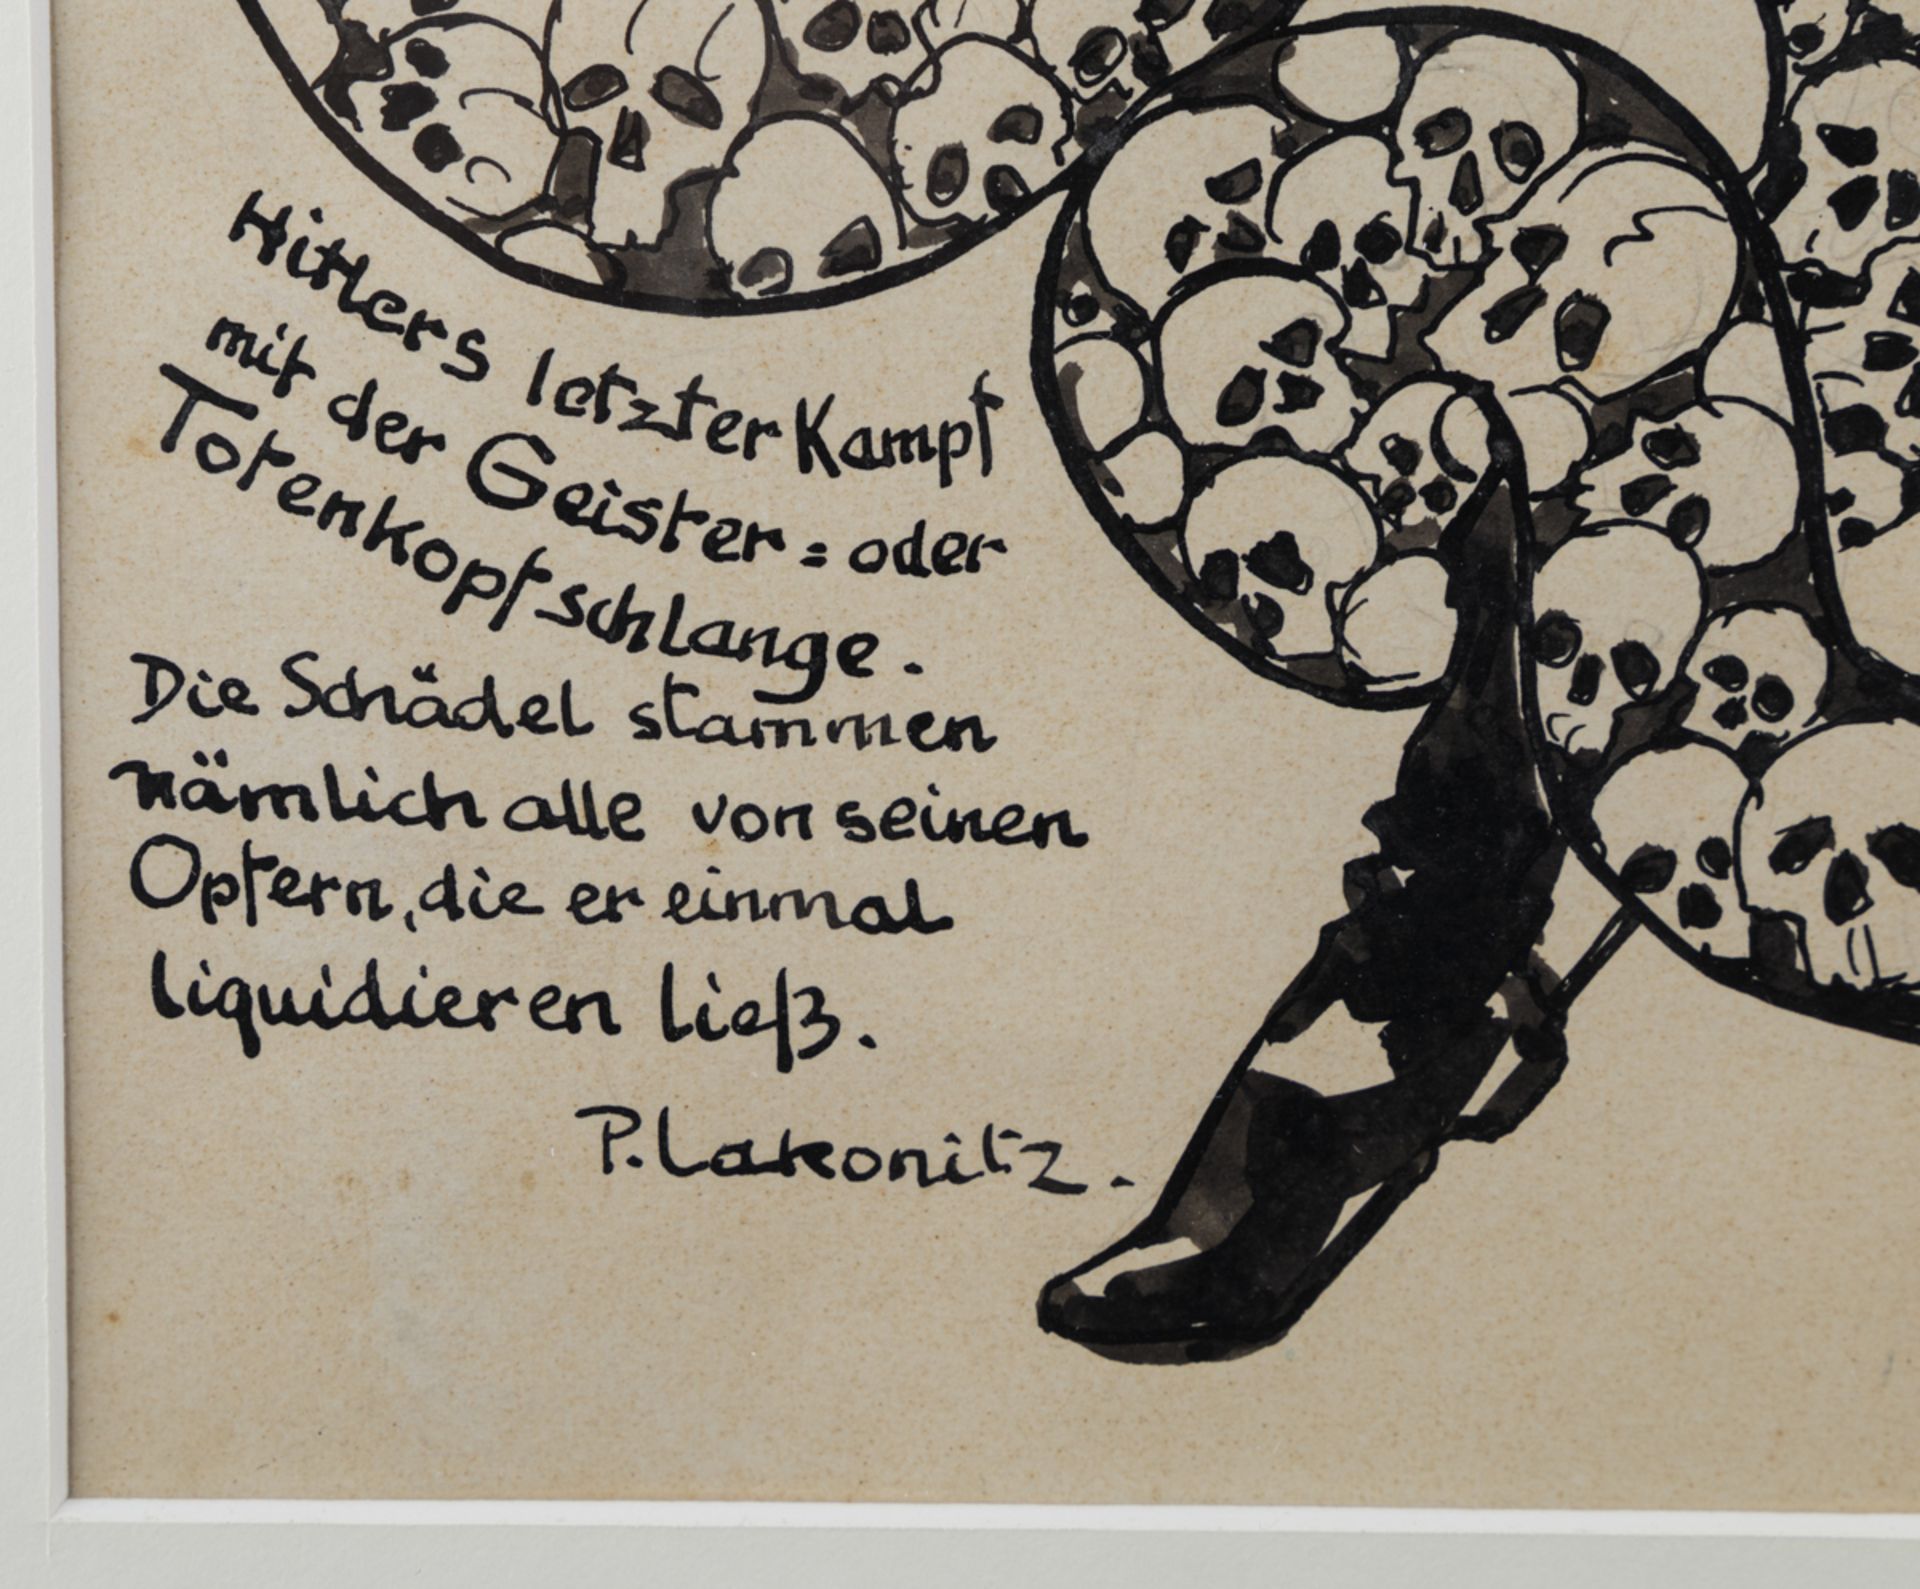 Hitlers letzter Kampf
mit der Geister= oder
Totenkopfschlange.
Die Schädel stammen
nämlich alle von seinen
Opfern, die er einmal
liquidieren ließ.
P. Lakonitz.